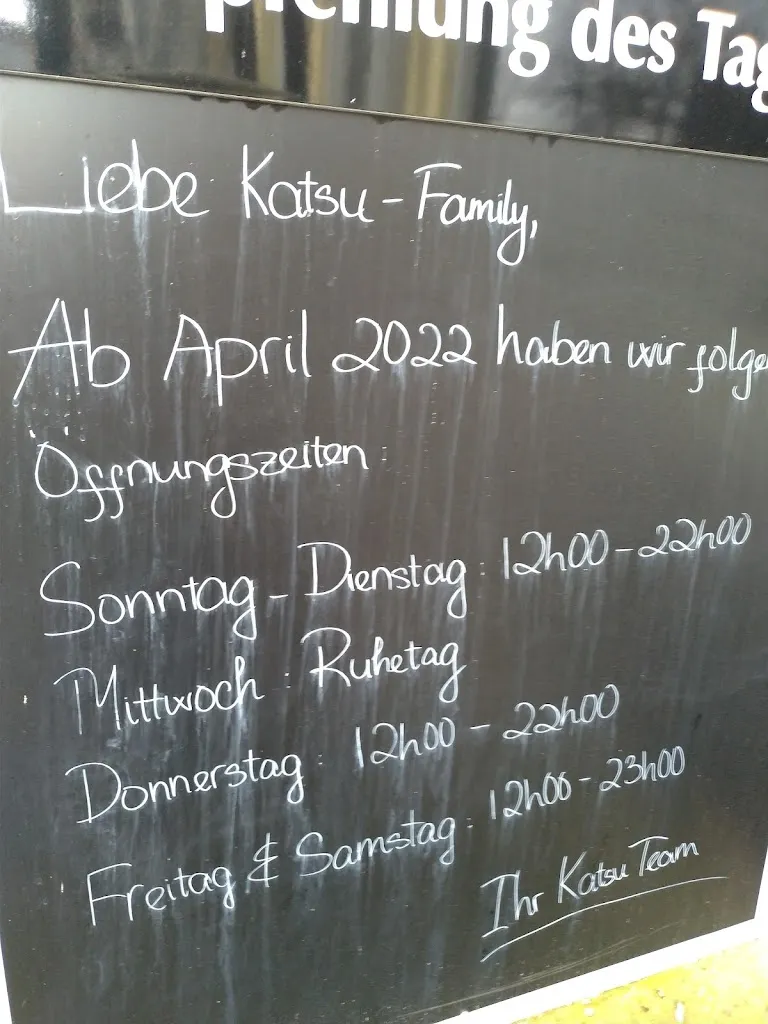 pfehlung des Tag
Liebe Katsu-Family,
Ab April 2022 haben wir folge
Öffnungszeiten:
Sonntag - Dienstag: 12h00 - 22h00
Mittwoch: Ruhetag
Donnerstag: 12h00 - 22h00
Freitag & Samstag: 12h00 - 23h00
Ihr Katsu Team